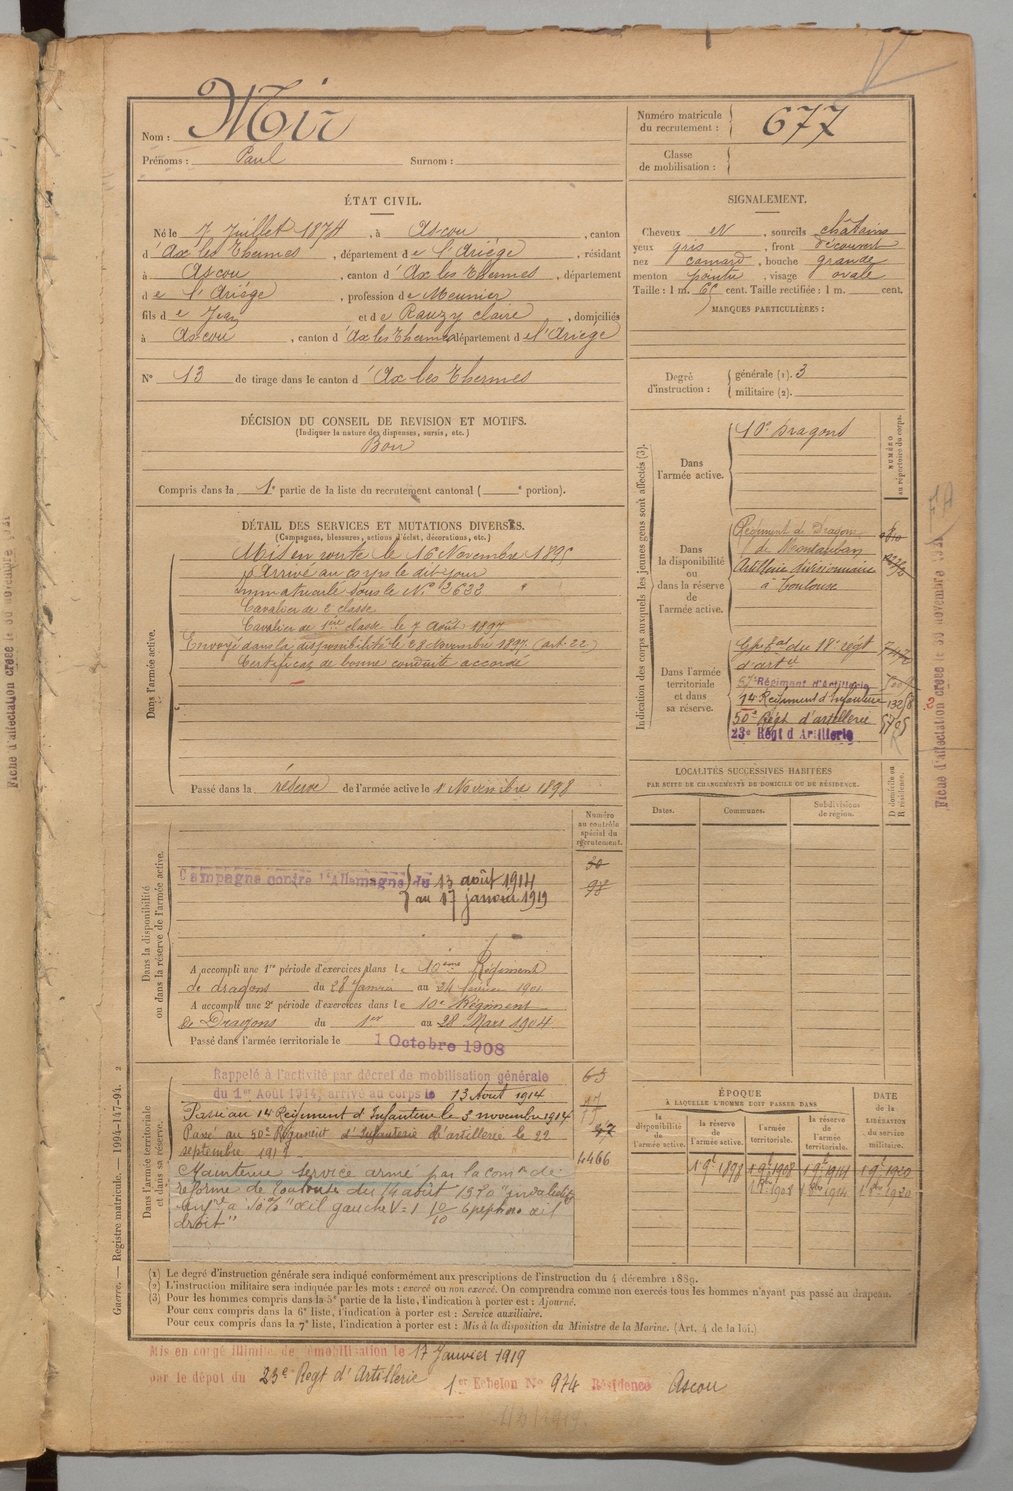 Nom : Mir
Prénoms : Paul Surnom :
Numéro matricule du recrutement : 677
Classe de mobilisation :
ÉTAT CIVIL.
Né le 7 Juillet 1874, à Ascou, canton
d'Ax les Thermes, département de l'Ariège, résidant
à Ascou, canton d'Ax les Thermes, département
de l'Ariége, profession de Meunier
fils de Jean et de Rauzy claire, domiciliés
à Ascou, canton d'Ax les Thermes département de l'Ariège
N° 13 de tirage dans le canton d'Ax les Thermes
SIGNALEMENT.
Cheveux N, sourcils châtains
yeux gris, front découvert
nez camard, bouche grande
menton pointu, visage ovale
Taille : 1 m. cent. Taille rectifiée : 1 m. cent.
MARQUES PARTICULIÈRES :
Degré d'instruction : générale (1). 3
militaire (2).
DÉCISION DU CONSEIL DE REVISION ET MOTIFS.
(Indiquer la nature des dispenses, sursis, etc.)
Bon
Compris dans la 1e partie de la liste du recrutement cantonal ( e portion).
DÉTAIL DES SERVICES ET MUTATIONS DIVERSES.
(Campagnes, blessures, actions d'éclat, décorations, etc.)
Dans l'armée active.
Mis en route le 16 Novembre 1895
Arrivé au corps le dit jour
Immatriculé sous le N° 3633
Cavalier de 2e classe
Cavalier de 1ère classe le 7 Août 1897
Envoyé dans la disponibilité le 28 Novembre 1897 (art. 22)
Certificat de bonne conduite accordé
Passé dans la réserve de l'armée active le 1 Novembre 1898
Indication des corps auxquels les jeunes gens sont affectés (3).
NUMÉRO au répertoire du corps.
Dans l'armée active.
10e Dragons
Dans la disponibilité ou dans la réserve de l'armée active.
Régiment de Dragons
de Montauban
Artillerie divisionnaire
à Toulouse
Dans l'armée territoriale et dans sa réserve.
Gpe tal du 18e régt
d'artie
57e Régiment d'Artillerie
14 Régiment d'Infanterie 132
50e Régt d'artillerie
23e Régt d'Artillerie
LOCALITÉS SUCCESSIVES HABITÉES
PAR SUITE DE CHANGEMENTS DE DOMICILE OU DE RÉSIDENCE.
Dates. Communes. Subdivisions de région. D domicile ou R résidence.
Dans la disponibilité ou dans la réserve de l'armée active.
Numéro au contrôle spécial du recrutement.
30
98
Campagne contre l'Allemagne du 13 août 1914
au 17 janvier 1919
A accompli une 1re période d'exercices dans le 10ème Régiment
de dragons du 28 Janvier au 24 février 1901
A accompli une 2e période d'exercices dans le 10e Régiment
de Dragons du 1er au 28 Mars 1904
Passé dans l'armée territoriale le 1 Octobre 1908
Dans l'armée territoriale et dans sa réserve.
Rappelé à l'activité par décret de mobilisation générale
du 1er Août 1914, arrivé au corps le 13 Août 1914
Passé au 14 Régiment d'Infanterie le 3 novembre 1914
Passé au 50e Régiment d'Infanterie d'artillerie le 22
septembre 1917
63
4466
Maintenu service armé par la comon de
réforme de Toulouse du 14 août 1920
œil gauche V=1 10/10 œil
droit"
ÉPOQUE
À LAQUELLE L'HOMME DOIT PASSER DANS
la disponibilité de l'armée active. la réserve de l'armée active. l'armée territoriale. la réserve de l'armée territoriale.
DATE de la LIBÉRATION du service militaire.
1 9e 1898 1 9e 1908 1 9e 1914 1 9e 1920
(1) Le degré d'instruction générale sera indiqué conformément aux prescriptions de l'instruction du 4 décembre 1889.
(2) L'instruction militaire sera indiquée par les mots : exercé ou non exercé. On comprendra comme non exercés tous les hommes n'ayant pas passé au drapeau.
(3) Pour les hommes compris dans la 5e partie de la liste, l'indication à porter est : Ajourné.
Pour ceux compris dans la 6e liste, l'indication à porter est : Service auxiliaire.
Pour ceux compris dans la 7e liste, l'indication à porter est : Mis à la disposition du Ministre de la Marine. (Art. 4 de la loi.)
Mis en congé illimité de démobilisation le 17 Janvier 1919
par le dépot du 23e Régt d'Artillerie 1er Echelon N° 974 Résidence Ascou
Guerre. — Registre matricule. — 1994-47-94. 2
Fiche d'affectation créée le 30 novembre